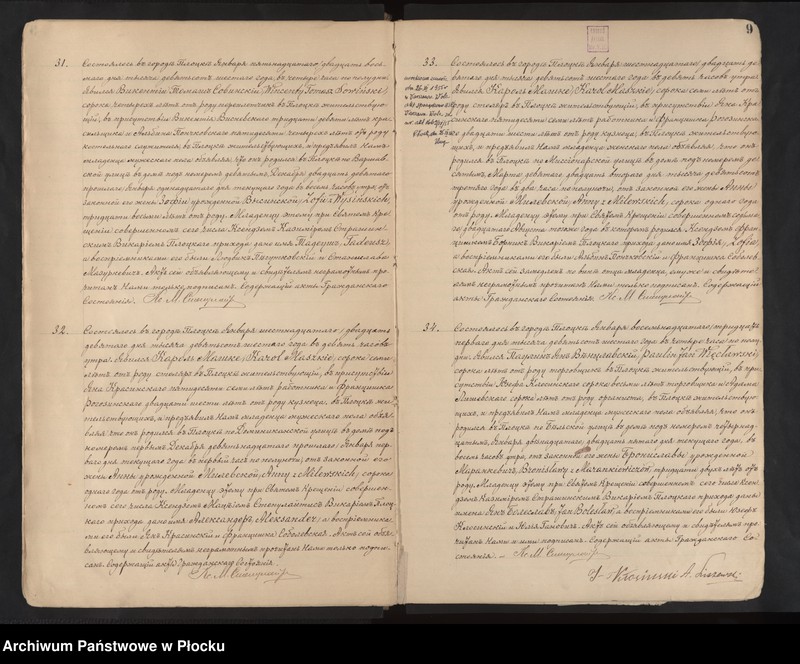 31. Состоялось въ городѣ Плоцкѣ Января пятнадцатаго /двадцать вось-
маго/ дня тысяча девятьсотъ шестаго года, въ четыре часа по полудни.
Явился Викентій Томашъ Совинскій /Wincenty Tomasz Sowiński/,
сорока четырехъ лѣтъ отъ роду, переплетчикъ въ Плоцкѣ жительствую-
щій, въ присутствіи Викентія Висневскаго тридцати девяти лѣтъ
и Альбина Пончковскаго пятидесяти четырехъ лѣтъ отъ роду
костельнаго служителя, въ Плоцкѣ жительствующихъ, и предъявилъ Намъ
младенца мужескаго пола объявляя, что онъ родился въ Плоцкѣ по Варшав-
ской улицѣ въ домѣ подъ номеромъ девятымъ, Декабря двадцать девятаго
прошлаго /Января одинадцатаго/ дня текущаго года въ восемь часовъ утра, отъ
законной его жены Зофіи урожденной Высинской /Zofii z Wysińskich/,
тридцати восьми лѣтъ отъ роду. Младенцу этому при Святомъ Кре-
щеніи совершенномъ сего числа Ксендзомъ Казиміромъ Страшин-
скимъ Викаріемъ Плоцкаго прихода дано имя Тадеушъ /Tadeusz/,
а воспріемниками его были и Станислава
Мазуркевичъ. Актъ сей объявляющему и свидѣтелямъ неграмотнымъ про-
читанъ Нами только подписанъ. Содержащій акты Гражданскаго
Состоянія. Кс. М.
32. Состоялось въ городѣ Плоцкѣ Января шестнадцатаго /двадцать
девятаго/ дня тысяча девятьсотъ шестаго года въ девять часовъ
утра. Явился Кароль Машке /Karol Maszkie/, сорока семи
лѣтъ отъ роду столяръ въ Плоцкѣ жительствующій, въ присутствіи
Яна Красинскаго пятидесяти семи лѣтъ работника и Францишка
двадцати шести лѣтъ отъ роду кузнеца, въ Плоцкѣ жи-
тельствующихъ, и предъявилъ Намъ младенца мужескаго пола объя-
вляя, что онъ родился въ Плоцкѣ по Доминиканской улицѣ въ домѣ подъ
номеромъ первымъ, Декабря девятнадцатаго прошлаго /Января пер-
ваго дня текущаго года въ первый часъ по полуночи, отъ законной его
жены Анны урожденной Милевской /Anny z Milewskich/, сорока
одного года отъ роду. Младенцу этому при Святомъ Крещеніи совершен-
номъ сего числа Ксендзомъ Викаріемъ Плоц-
каго прихода дано имя Александеръ /Aleksander/, а воспріемника-
ми его были Янъ Красинскій и Францишка Соболевская. Актъ сей объя-
вляющему и свидѣтелямъ неграмотнымъ прочитанъ Нами только подпи-
санъ. Содержащій акты Гражданскаго Состоянія.
Кс. М.
9
33. Состоялось въ городѣ Плоцкѣ Января шестнадцатаго /двадцать де-
вятаго/ дня тысяча девятьсотъ шестаго года въ девять часовъ утра.
Явился Кароль Машке /Karol Maszkie/, сорока семи лѣтъ отъ
роду столяръ въ Плоцкѣ жительствующій, въ присутствіи Яна Кра-
синскаго пятидесяти семи лѣтъ работника и Францишка
двадцати шести лѣтъ отъ роду кузнеца, въ Плоцкѣ жительствую-
щихъ, и предъявилъ Намъ младенца женскаго пола объявляя, что она
родилась въ Плоцкѣ по улицѣ въ домѣ подъ номеромъ де-
сятымъ, Марта девятаго /двадцать втораго/ дня тысяча девятьсотъ
третьяго года въ два часа по полуночи, отъ законной его жены Анны
урожденной Милевской /Anny z Milewskich/, сорока одного года
отъ роду. Младенцу этому при Святомъ Крещеніи совершенномъ
Августа того же года въ костелѣ Ксендзомъ Фран-
цишкомъ Викаріемъ Плоцкаго прихода дано имя Зофія /Zofia/,
а воспріемниками его были Альбинъ Пончковскій и Францишка Соболев-
ская. Актъ сей замедленъ по винѣ отца младенца, ему же и свидѣте-
лямъ неграмотнымъ прочитанъ Нами только подписанъ. Содержащій
акты Гражданскаго Состоянія. Кс. М.
34. Состоялось въ городѣ Плоцкѣ Января восемнадцатаго /тридцать
перваго/ дня тысяча девятьсотъ шестаго года въ четыре часа по полу-
дни. Явился Паулинъ Янъ Венцлавскій /Paulin Jan Więcławski/,
сорока лѣтъ отъ роду торговецъ въ Плоцкѣ жительствующій, въ при-
сутствіи Юзефа Клосинскаго сорока восьми лѣтъ торговца и Адама
сорока лѣтъ отъ роду органиста, въ Плоцкѣ жительствую-
щихъ, и предъявилъ Намъ младенца мужескаго пола объявляя, что онъ
родился въ Плоцкѣ по Бѣльской улицѣ въ домѣ подъ номеромъ четырнад-
цатымъ, Января двѣнадцатаго /двадцать пятаго/ дня текущаго года, въ
восемь часовъ утра, отъ законной его жены Брониславы урожденной
Миранкевичъ /Bronisławy z Mirankiewiczów/, тридцати двухъ лѣтъ отъ
роду. Младенцу этому при Святомъ Крещеніи совершенномъ сего числа Ксен-
дзомъ Казиміромъ Страшинскимъ Викаріемъ Плоцкаго прихода даны
имена Янъ Болеславъ /Jan Bolesław/, а воспріемниками его были Юзефъ
Клосинскій и Актъ сей объявляющему и свидѣтелямъ про-
читанъ Нами и ими подписанъ. Содержащій акты Гражданскаго Со-
стоянія. Кс. М.
Archiwum Państwowe w Płocku